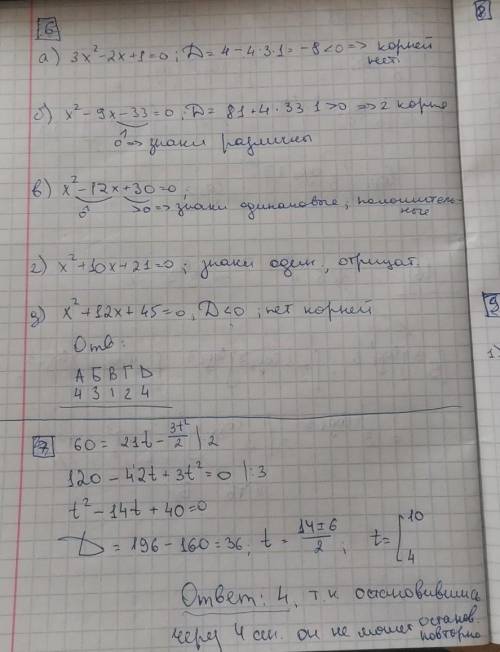 6
8
а) 3x² - 2x + 1 = 0 ; D = 4 - 4·3·1 = -8 < 0 => корней
нет.
б) x² - 9x - 33 = 0 ; D = 81 + 4·33·1 > 0 => 2 корня
=> знаки различны
в) x² - 12x + 30 = 0 ;
>0 => знаки одинаковые, положитель-
ные
г) x² + 10x + 21 = 0 ; знаки один, отрицат.
д) x² + 12x + 45 = 0, D < 0 ; нет корней
Отв:
А Б В Г D
4 3 1 2 4
7
60 = 21t - 3t²/2 | 2
120 - 42t + 3t² = 0 | :3
t² - 14t + 40 = 0
D = 196 - 160 = 36 ; t = (14 ± 6)/2 ; t = [10
4
Ответ: 4, т.к остановившись
через 4 сек. он не может останов.
повторно
9
1)